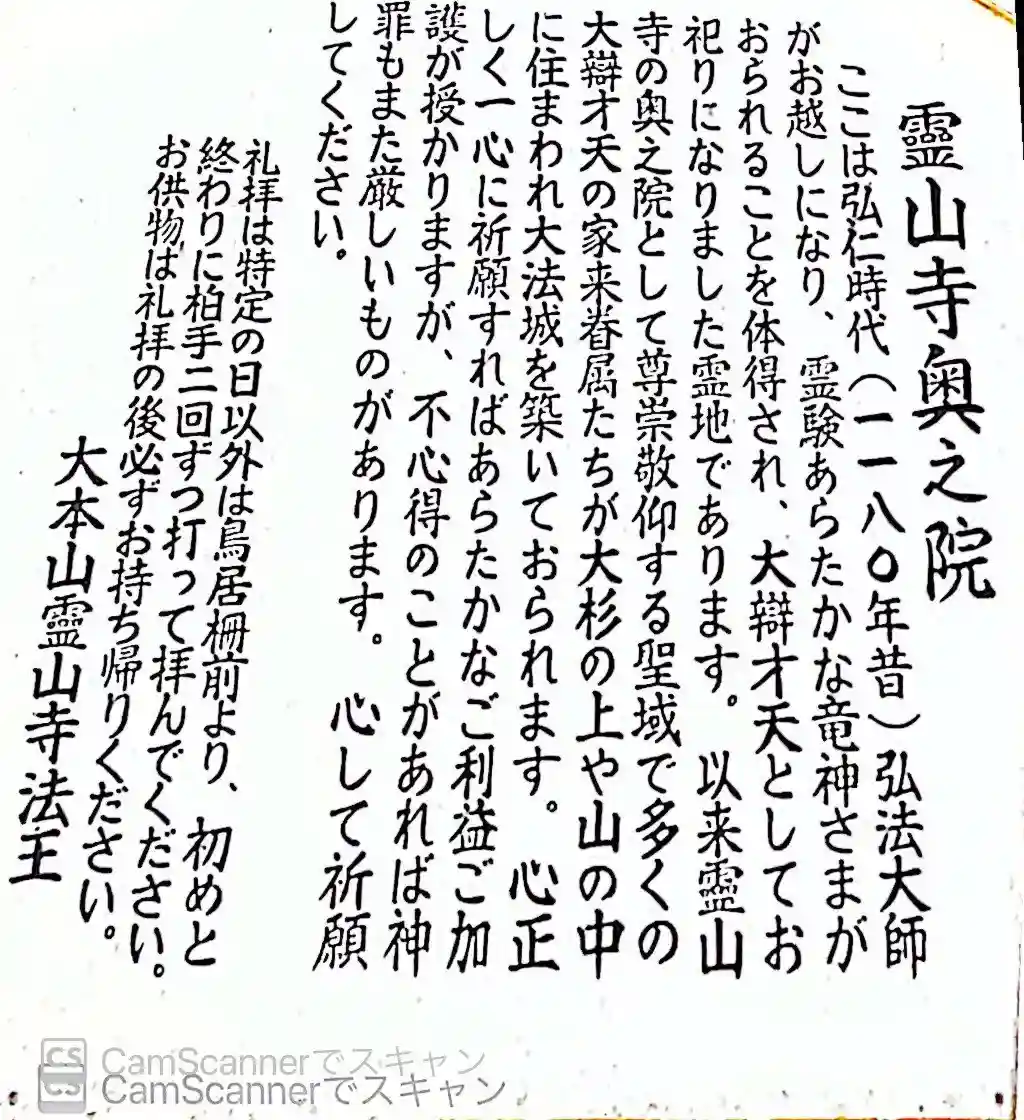 靈山寺奥之院
ここは弘仁時代（一一八〇年昔）弘法大師
がお越しになり、霊験あらたかな竜神さまが
おられることを体得され、大辯才天としてお
祀りになりました霊地であります。以来靈山
寺の奥之院として尊崇敬仰する聖域で多くの
大辯才天の家来眷属たちが大杉の上や山の中
に住まわれ大法城を築いておられます。心正
しく一心に祈願すればあらたかなご利益ご加
護が授かりますが、不心得のことがあれば神
罪もまた厳しいものがあります。心して祈願
してください。
礼拝は特定の日以外は鳥居柵前より、初めと
終わりに柏手二回ずつ打って拝んでください。
お供物は礼拝の後必ずお持ち帰りください。
大本山靈山寺法主
CS CamScannerでスキャン
CS CamScannerでスキャン